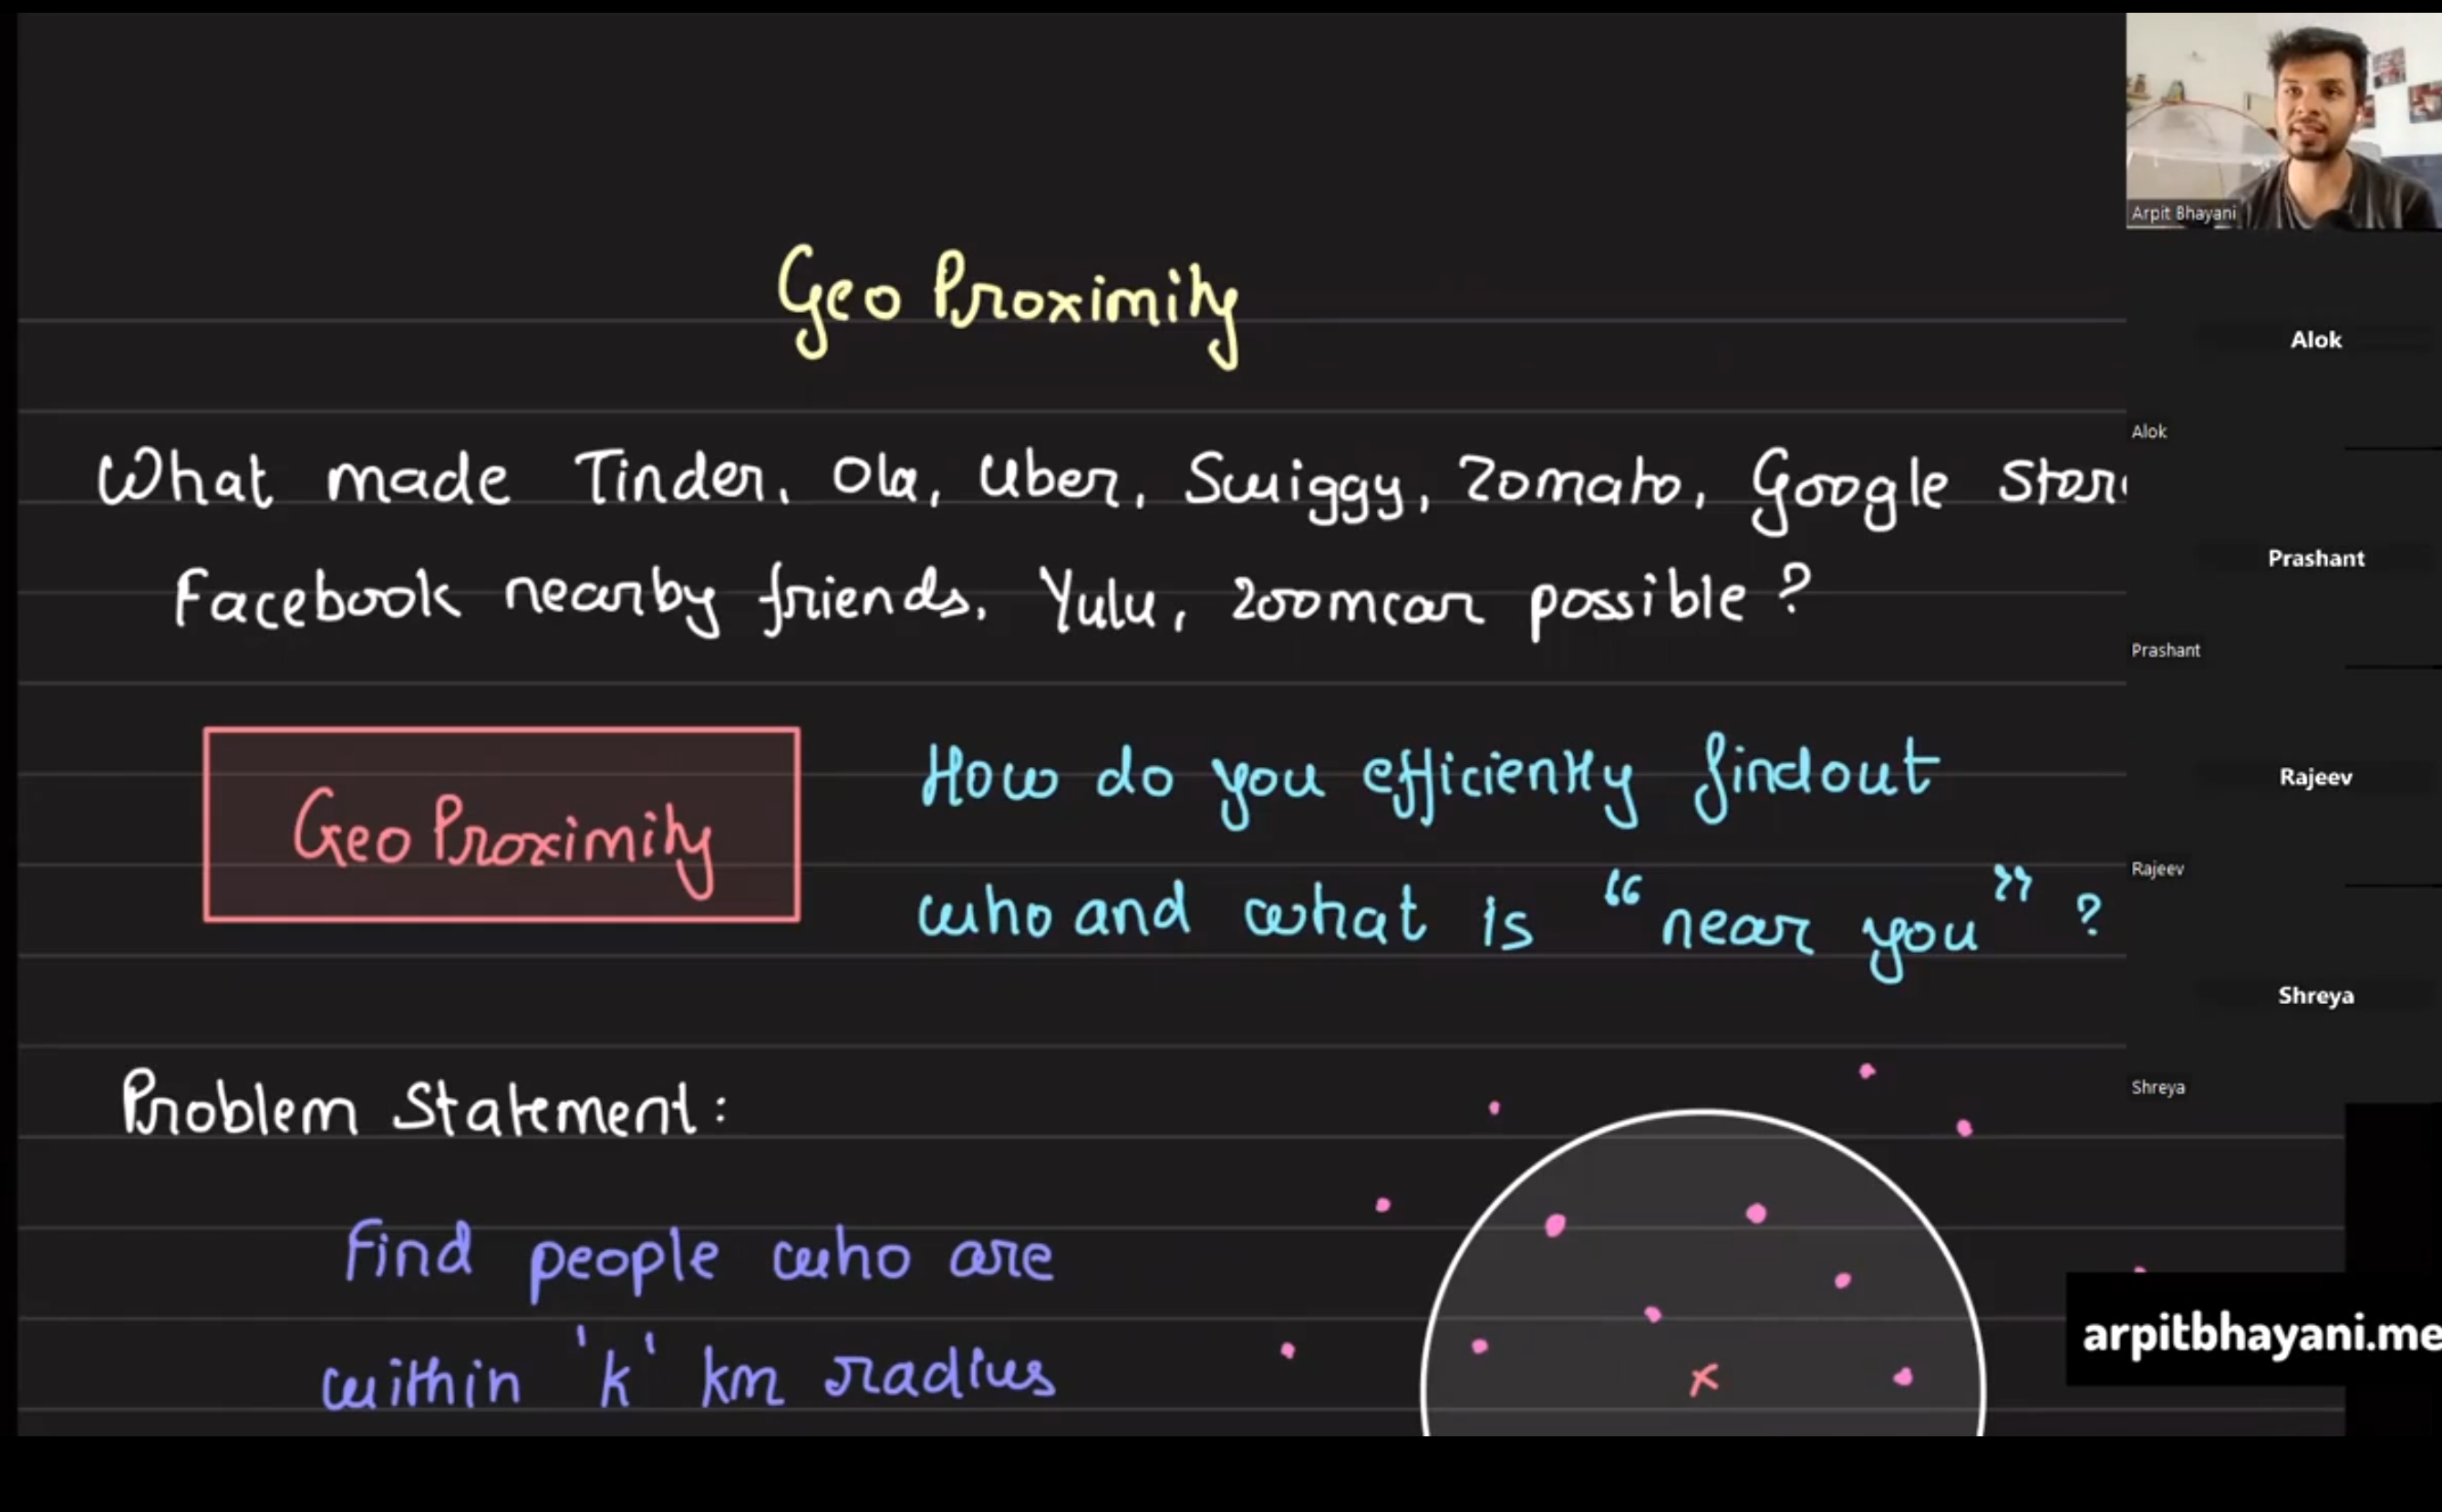 Geo Proximity
What made Tinder, Ola, Uber, Swiggy, Zomato, Google
Facebook nearby friends, Yulu, Zoomcar possible?
Geo Proximity
How do you efficiently findout
who and what is "near you" ?
Problem Statement:
Find people who are
within 'k' km radius
x
Arpit Bhayani
Alok
Alok
Prashant
Prashant
Rajeev
Rajeev
Shreya
Shreya
arpitbhayani.me